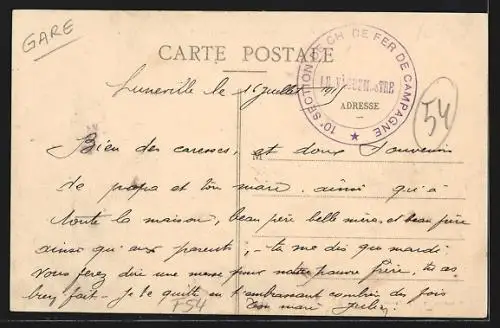 GARE
CARTE POSTALE
10e SECTION DE CH. DE FER DE CAMPAGNE
ADRESSE
54
Luneville le 16 juillet 191
Bien des caresses, et doux Souvenir
M
de papa et ton mari, ainsi qu'à
toute la maison, beau père belle mère, et beau frère
ainsi qu'aux parents, - tu me dis que mardi
Vous ferez dire une messe pour notre pauvre frère, tu as
bien fait - je te quitte en t'embrassant combien des fois
F54
Ton mari